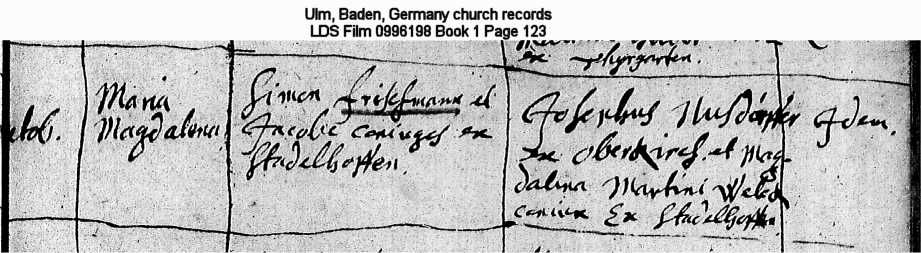 Ulm, Baden, Germany church records
LDS Film 0996198 Book 1 Page 123
ex Thyrgarten.
Maria
Magdalena
Simon Frischmann et
Jacobe coniuges ex
Stadelhoffen.
Josephus Nusdörffer
ex Oberkirch. et Mag-
dalena Martini
coniux Ex Stadelhoffen
Idem.